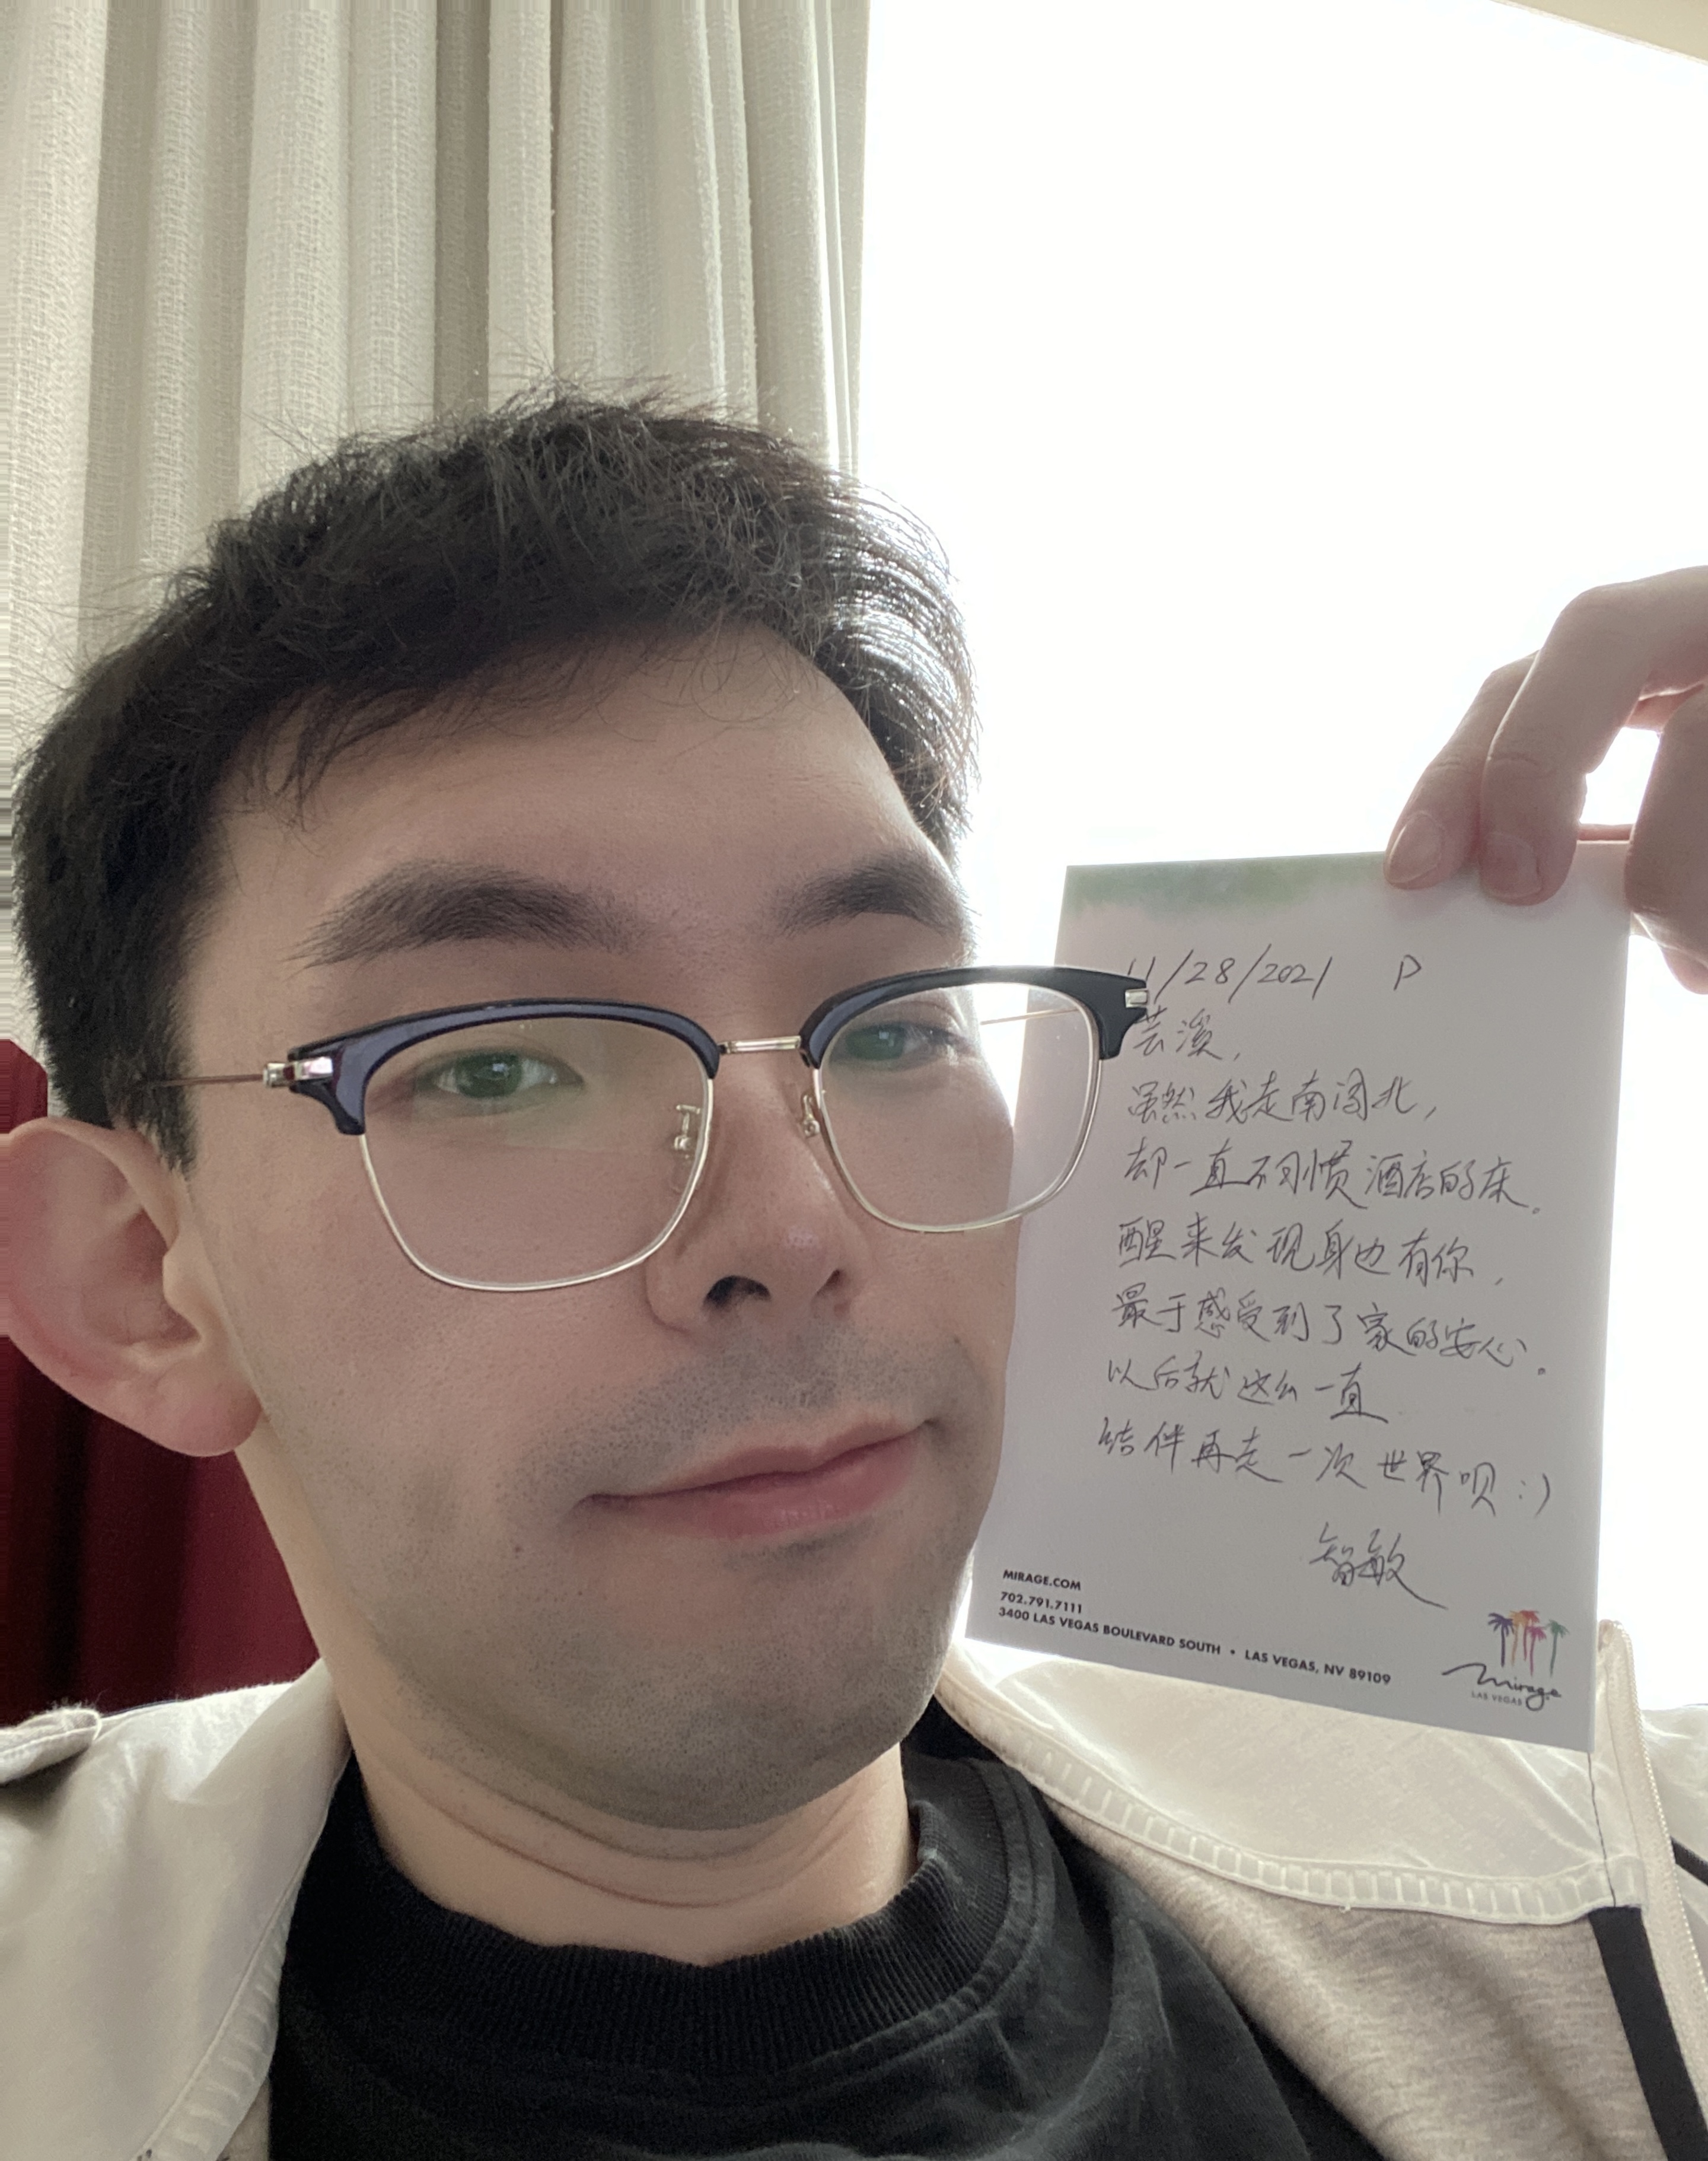 11/28/2021 P
芸溪，
虽然我走南闯北，
却一直不习惯酒店的床。
醒来发现身边有你，
最于感受到了家的安心。
以后就这么一直
结伴再走一次世界呗:)
智敏
MIRAGE.COM
702.791.7111
3400 LAS VEGAS BOULEVARD SOUTH • LAS VEGAS, NV 89109
mirage
LAS VEGAS